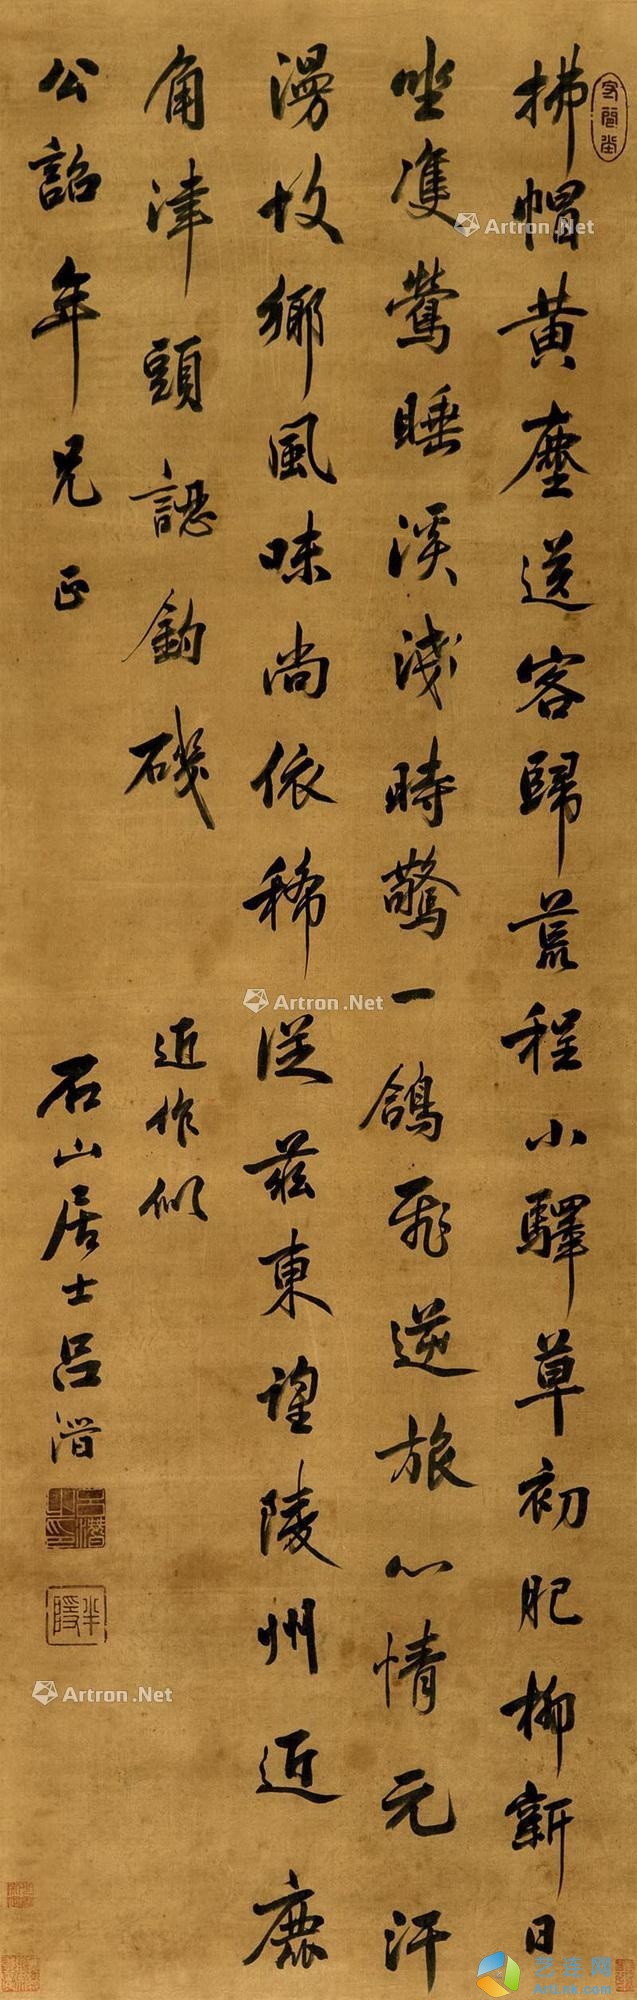 拂帽黄塵送客歸荒程小驛草初肥柳新日
坐凌鶯睡溪淺時驚一鴿飛逆旅心情元汗
漫故鄉風味尚依稀從茲東望陵州近鹿
角津頭認釣磯 近作似
公詒年兄正
石山居士呂潛
半隱
Artron.Net
Artron.Net
Artron.Net
艺连网
ArtLnk.com